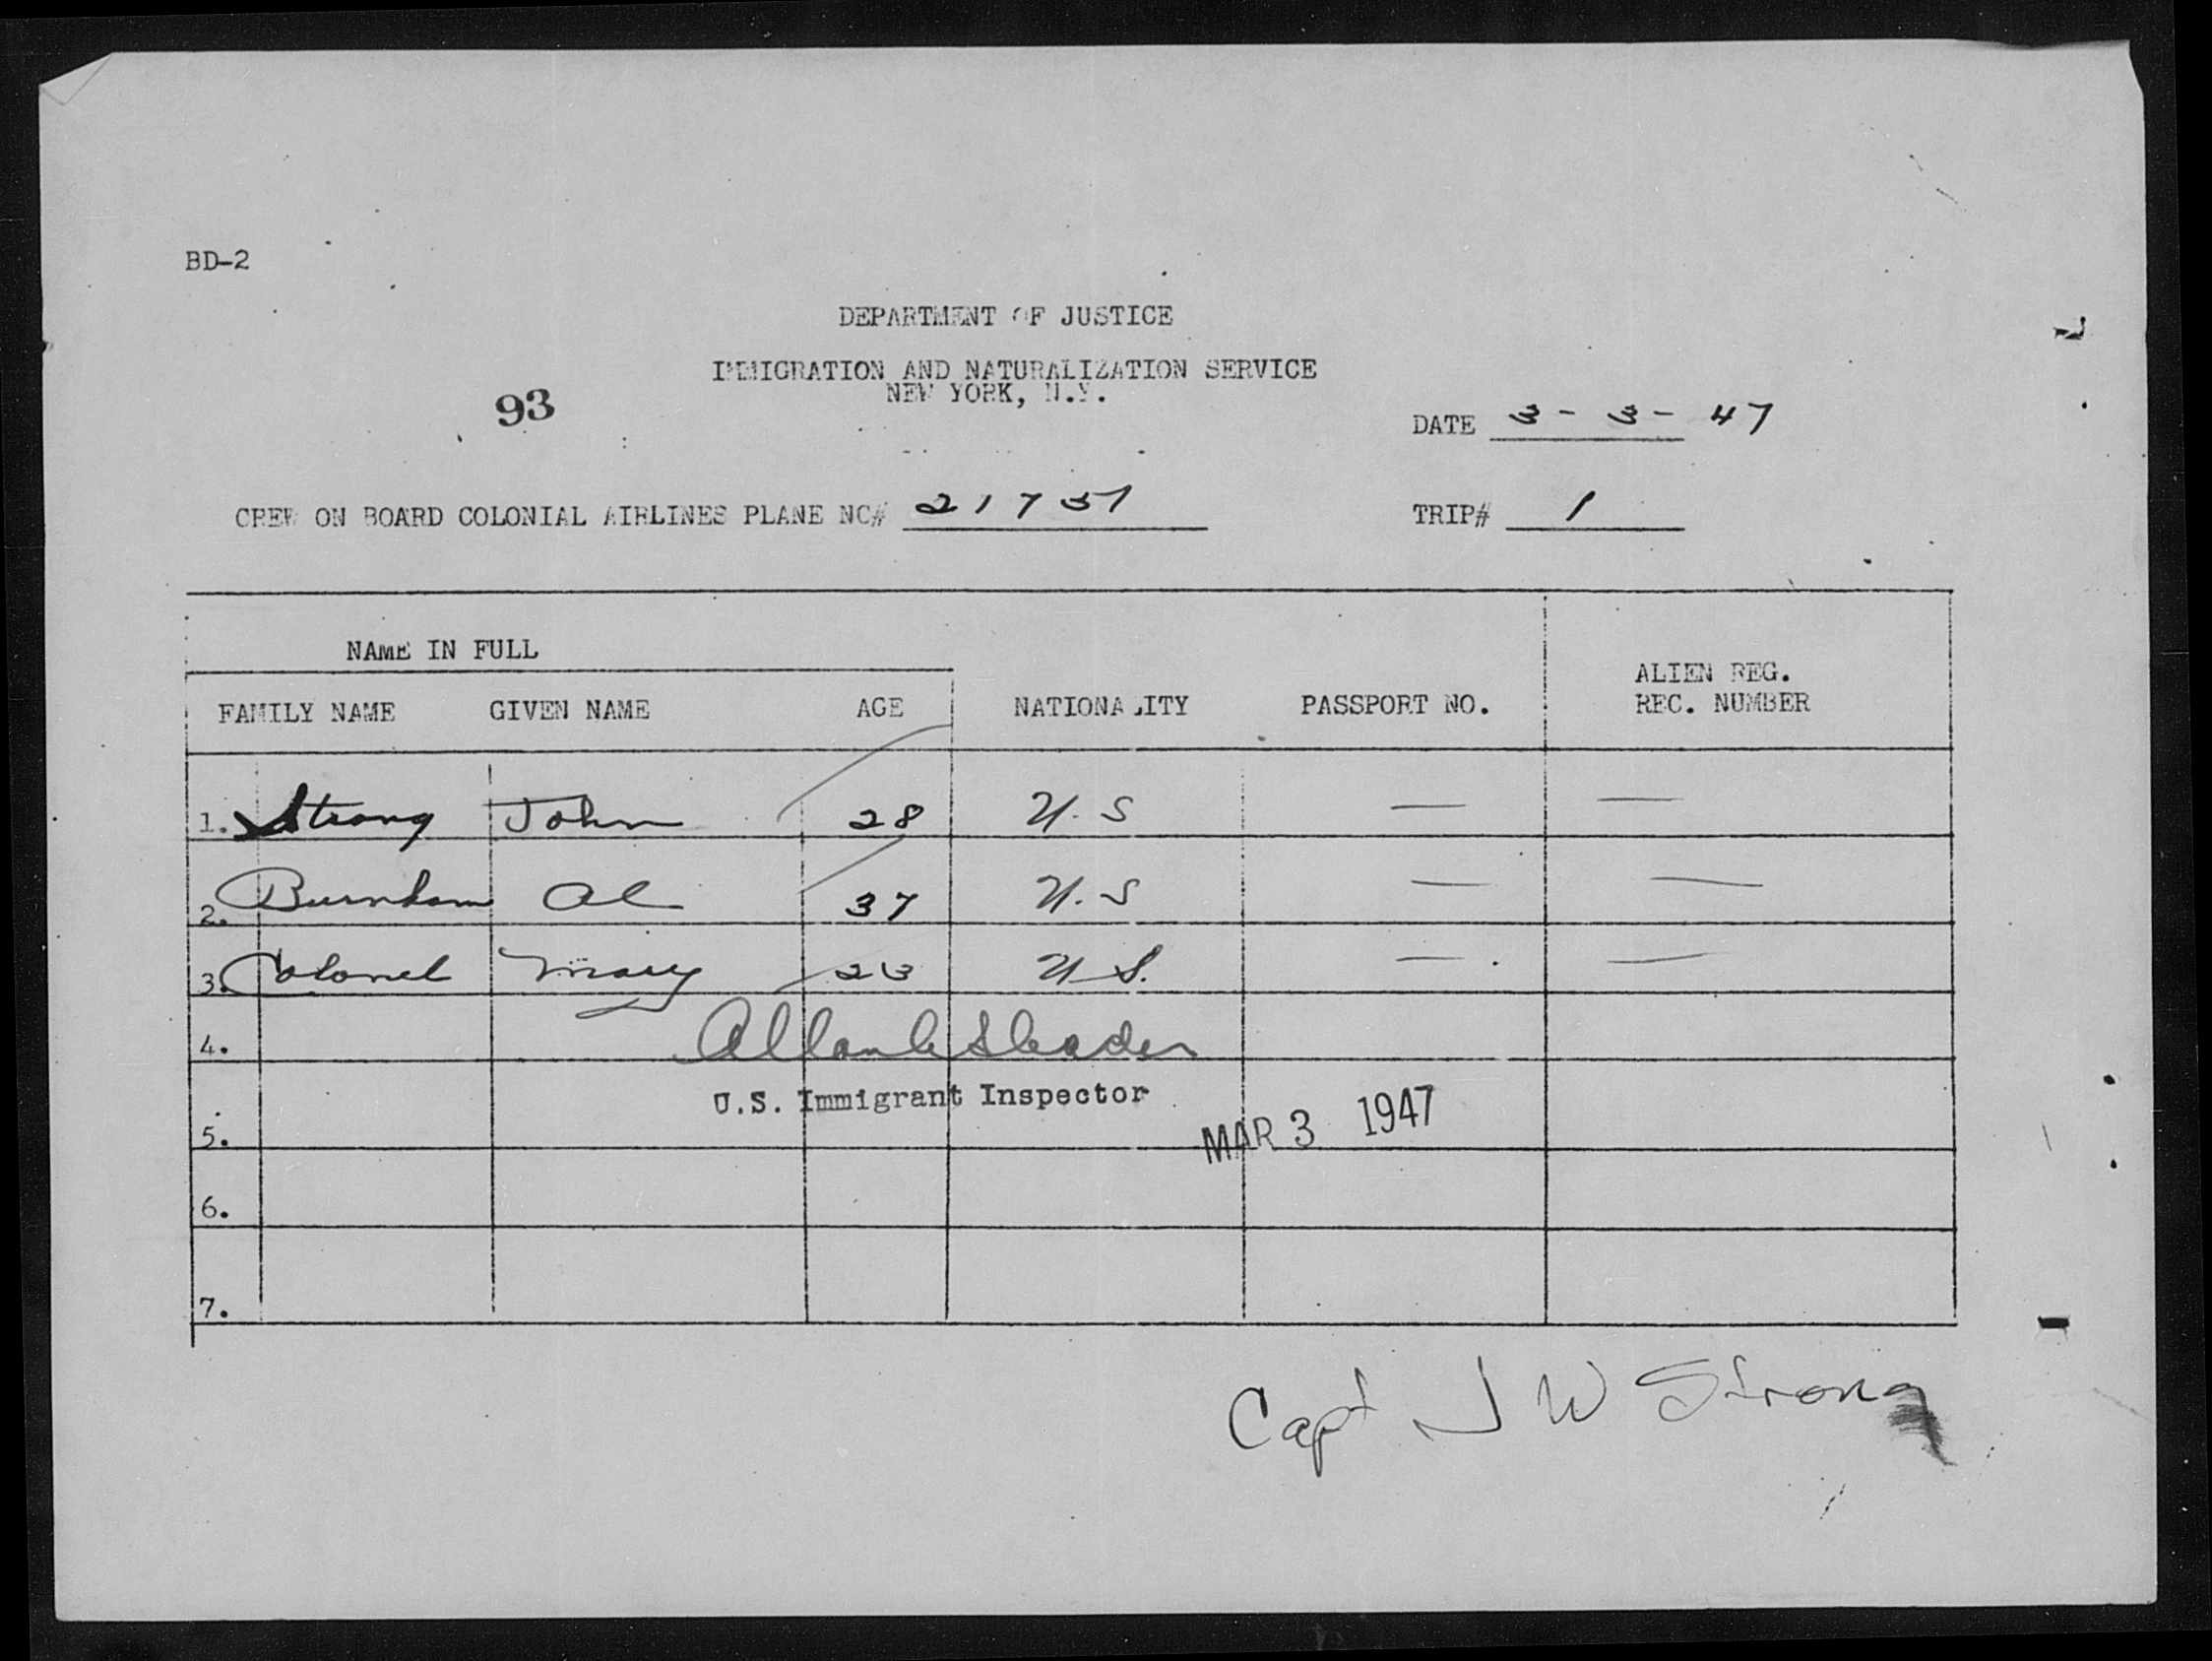 BD-2
DEPARTMENT OF JUSTICE
IMMIGRATION AND NATURALIZATION SERVICE
NEW YORK, N.Y.
93
DATE 3-3-47
CREW ON BOARD COLONIAL AIRLINES PLANE NC# 21751
TRIP# 1
NAME IN FULL
FAMILY NAME GIVEN NAME AGE NATIONALITY PASSPORT NO. ALIEN REG. REC. NUMBER
1. Strong John 28 U.S — —
2. Burnham Al 37 U.S — —
3. Colonel Mary 23 U S. — —
4.
U.S. Immigrant Inspector
MAR 3 1947
5.
6.
7.
Capt J W Strong